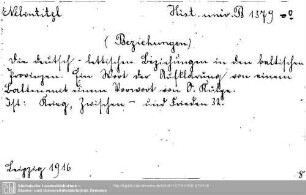 Nebentitel Hist. univ. B 1379 =o
(Beziehungen)
Die deutsch-lettischen Beziehungen in den baltischen
Provinzen. Ein Wort der Aufklärung von einem
Balten mit einem Vorwort von O. Kunze.
Ist: Krieg, Zwischen- und Frieden 32.
Leipzig 1916
Sächsische Landesbibliothek -
Staats- und Universitätsbibliothek Dresden